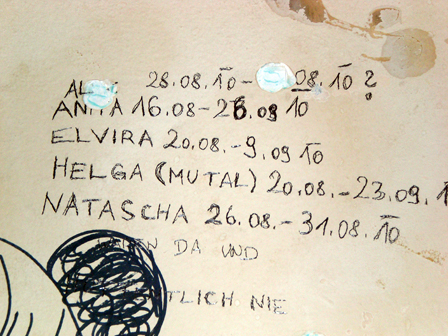 28.08.10- 08.10?
ANITA 16.08-26.09 10
ELVIRA 20.08.-9.09 10
HELGA (MUTAL) 20.08.-23.09.1
NATASCHA 26.08.-31.08.10
DA UND
TLICH NIE